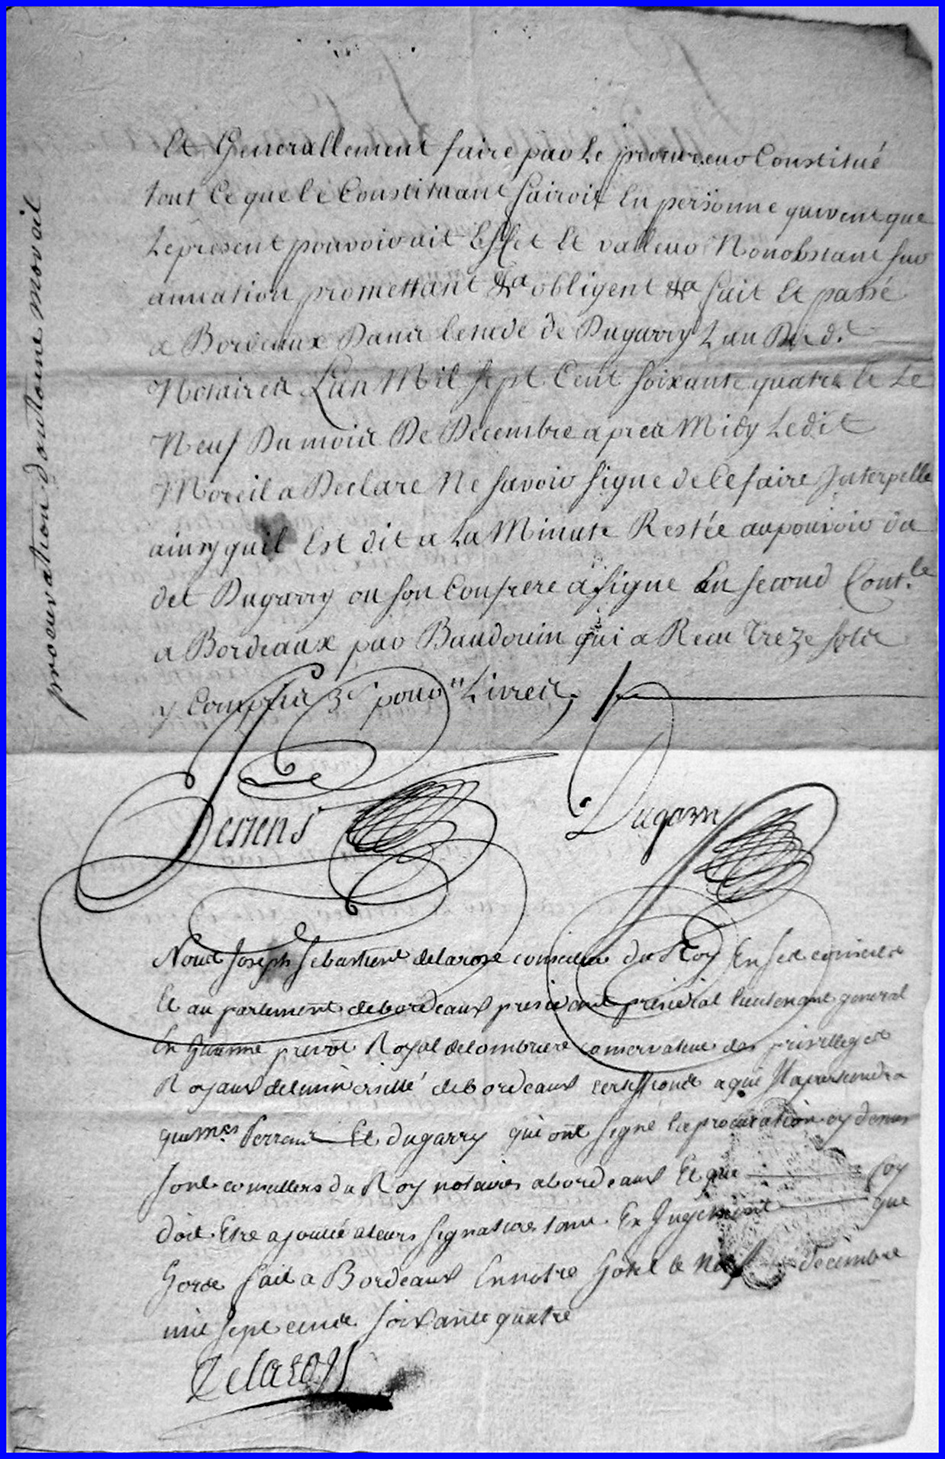 procuration d'antoine moreil
Et Generallement faire par Le procureur Constitué
tout Ce que le Constituant fairoit En personne quovent que
Le present pouvoir ait Effet Et valleur Nonobstant sur
annation promettant &a obligent &a fait Et passé
a Bordeaux Dans letude de Dugarry Lun Des d.
Notaires Lan Mil sept Cent soixante quatre le Le
Neuf Du mois De Decembre apres Midy Ledit
Moreil a Declaré Ne savoir signe de Ce faire Interpellé
ainsy quil Est dit a La Minute Restée au pouvoir du
det Dugarry ou son Confrere a signe En second Cont.le
a Bordeaux par Baudouin qui a Recu treze sols
y Compris 3 s pour Livres.
Dugarry
Nous Joseph Sebastient delarose conseiller du Roy En ses conseils
Et au parlement de bordeaux president presidial lieutenant general
En Guienne prevot Royal delombriere conservateur des privilleges
Royaux deluniversitté de bordeaux certiffions a qui Il apartiendra
que mes Perrens Et dugarry qui ont signé la procuration cy dessus
sont conseillers du Roy notaires a bordeaux Et que foy
doit Etre ajoutée a leurs signatures tant En Jugement que
hors fait a Bordeaux En notre hotel le neuf decembre
mil sept cends soixante quatre
Delarose